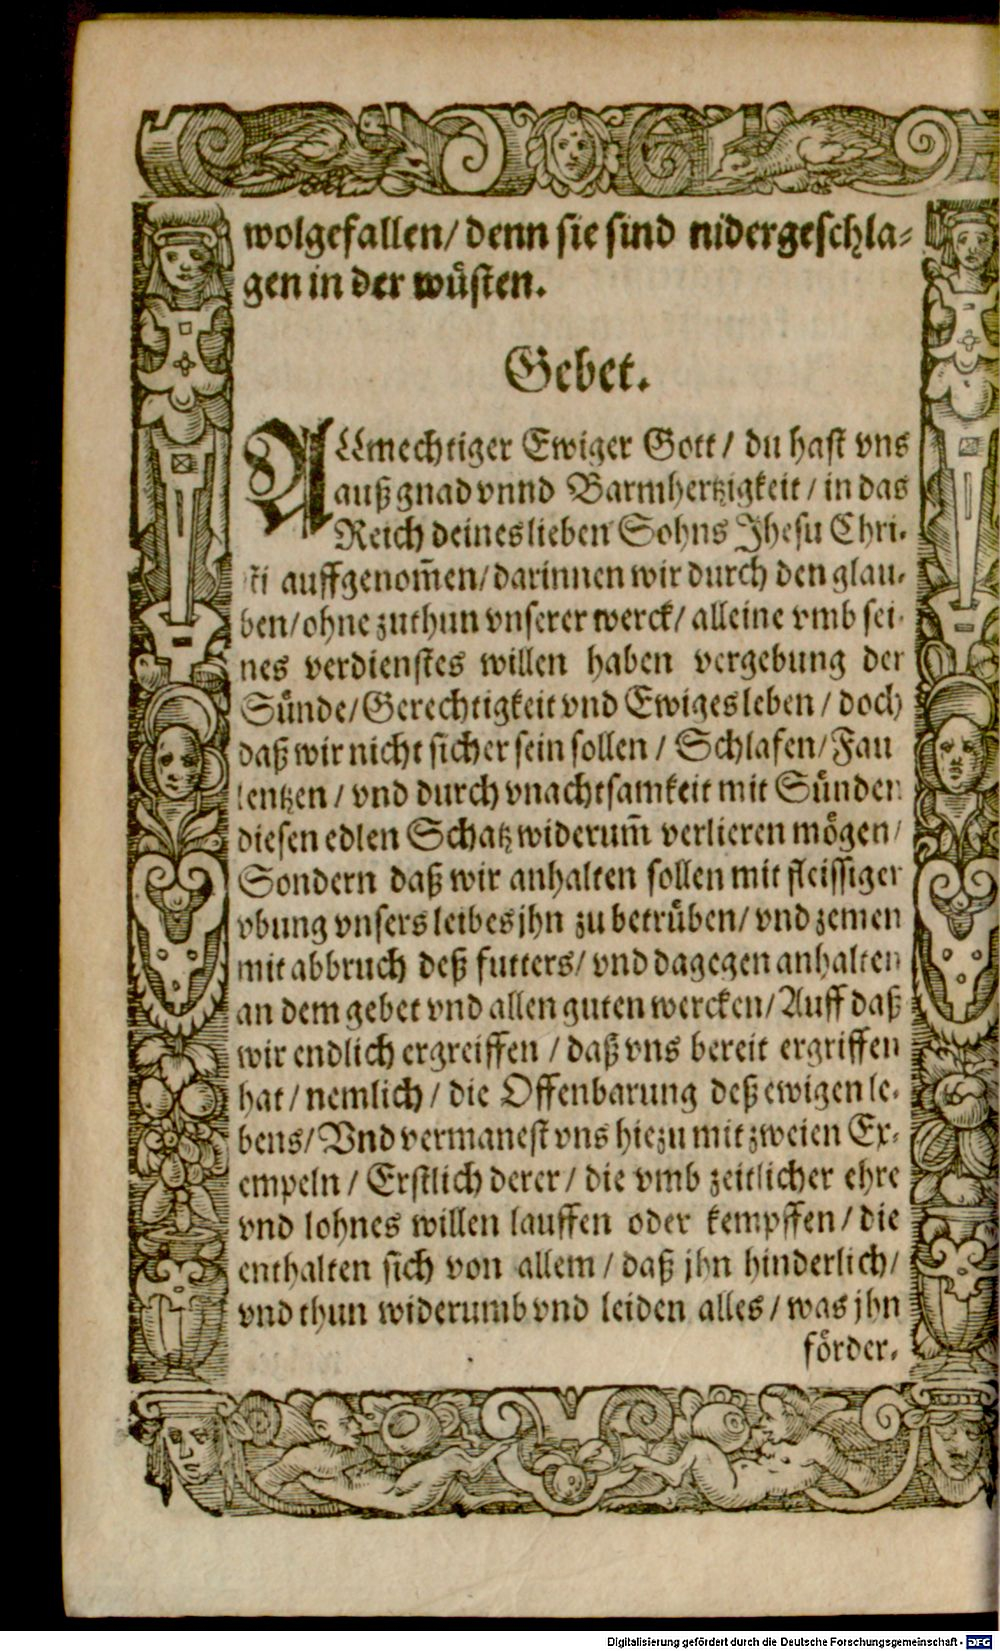 wolgefallen/ denn sie sind nidergeschla-
gen in der wüsten.
Gebet.
ALLmechtiger Ewiger Gott/ du hast vns
auß gnad vnnd Barmhertzigkeit/ in das
Reich deines lieben Sohns Jhesu Chri-
sti auffgenom̃en/ darinnen wir durch den glau-
ben/ ohne zuthun vnserer werck/ alleine vmb sei-
nes verdienstes willen haben vergebung der
Sünde/ Gerechtigkeit vnd Ewiges leben/ doch
daß wir nicht sicher sein sollen/ Schlafen/ Fau
lentzen/ vnd durch vnachtsamkeit mit Sünden
diesen edlen Schatz widerum̃ verlieren mögen/
Sondern daß wir anhalten sollen mit fleissiger
vbung vnsers leibes jhn zu betrüben/ vnd zemen
mit abbruch deß futters/ vnd dagegen anhalten
an dem gebet vnd allen guten wercken/ Auff daß
wir endlich ergreiffen/ daß vns bereit ergriffen
hat/ nemlich/ die Offenbarung deß ewigen le-
bens/ Vnd vermanest vns hiezu mit zweien Ex-
empeln/ Erstlich derer/ die vmb zeitlicher ehre
vnd lohnes willen lauffen oder kempffen/ die
enthalten sich von allem/ daß jhn hinderlich/
vnd thun widerumb vnd leiden alles/ was jhn
förder-
Digitalisierung gefördert durch die Deutsche Forschungsgemeinschaft - DFG